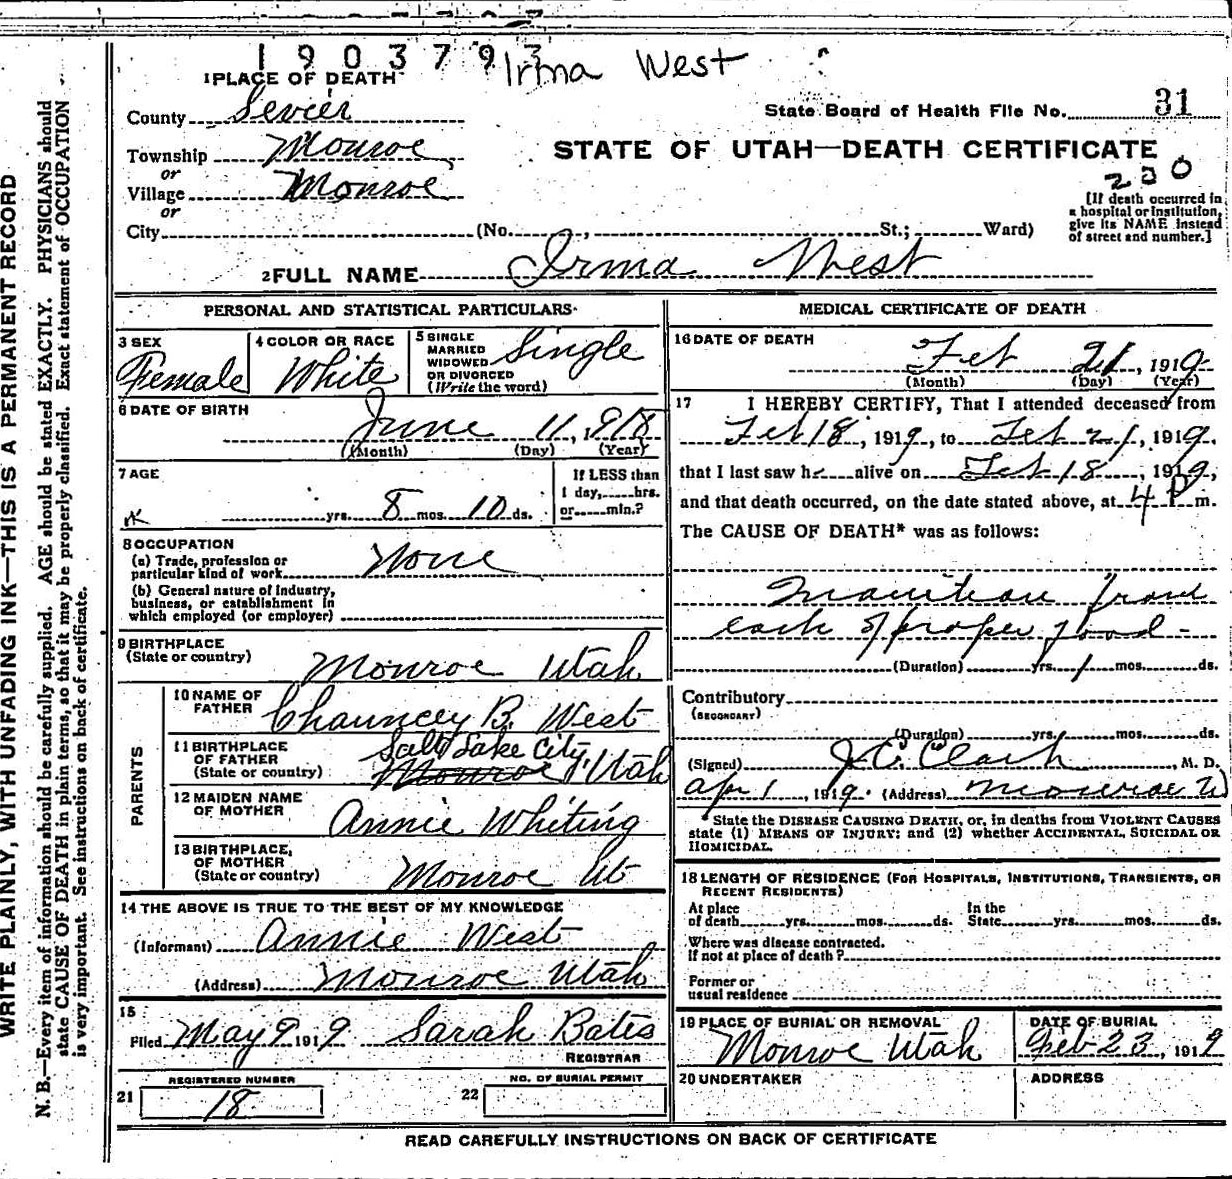 1903793 Irma West
1 PLACE OF DEATH
County Sevier
State Board of Health File No. 31
Township Monroe
STATE OF UTAH—DEATH CERTIFICATE
or
Village Monroe
200
or
[If death occurred in a hospital or institution, give its NAME instead of street and number.]
City (No. , St.; Ward)
2 FULL NAME Irma West
PERSONAL AND STATISTICAL PARTICULARS
3 SEX
Female
4 COLOR OR RACE
White
5 SINGLE
MARRIED
WIDOWED
OR DIVORCED
(Write the word)
Single
6 DATE OF BIRTH
June 11, 1918
(Month) (Day) (Year)
7 AGE
yrs. 8 mos. 10 ds.
If LESS than
1 day, hrs.
or min.?
8 OCCUPATION
(a) Trade, profession or
particular kind of work None
(b) General nature of industry,
business, or establishment in
which employed (or employer)
9 BIRTHPLACE
(State or country)
Monroe Utah
PARENTS
10 NAME OF
FATHER
Chauncey B. West
11 BIRTHPLACE
OF FATHER
(State or country)
Salt Lake City,
Monroe Utah
12 MAIDEN NAME
OF MOTHER
Annie Whiting
13 BIRTHPLACE,
OF MOTHER
(State or country)
Monroe Ut
14 THE ABOVE IS TRUE TO THE BEST OF MY KNOWLEDGE
(Informant) Annie West
(Address) Monroe Utah
15
Filed May 9 1919 Sarah Bates
REGISTRAR
21 REGISTERED NUMBER
18
22 NO. OF BURIAL PERMIT
MEDICAL CERTIFICATE OF DEATH
16 DATE OF DEATH
Feb 21, 1919
(Month) (Day) (Year)
17 I HEREBY CERTIFY, That I attended deceased from
Feb 18, 1919, to Feb 21, 1919,
that I last saw h alive on Feb 18, 1919,
and that death occurred, on the date stated above, at 4 P m.
The CAUSE OF DEATH* was as follows:
Inanition from
lack of proper food -
(Duration) yrs. 1 mos. ds.
Contributory
(SECONDARY)
(Duration) yrs. mos. ds.
(Signed) J. C. Clark, M. D.
Apr 1, 1919. (Address) Monroe U
State the DISEASE CAUSING DEATH, or, in deaths from VIOLENT CAUSES
state (1) MEANS OF INJURY; and (2) whether ACCIDENTAL, SUICIDAL OR
HOMICIDAL.
18 LENGTH OF RESIDENCE (FOR HOSPITALS, INSTITUTIONS, TRANSIENTS, OR
RECENT RESIDENTS)
At place
of death yrs. mos. ds.
In the
State yrs. mos. ds.
Where was disease contracted.
If not at place of death?
Former or
usual residence
19 PLACE OF BURIAL OR REMOVAL
Monroe Utah
DATE OF BURIAL
Feb 23, 1919
20 UNDERTAKER
ADDRESS
READ CAREFULLY INSTRUCTIONS ON BACK OF CERTIFICATE
WRITE PLAINLY, WITH UNFADING INK—THIS IS A PERMANENT RECORD
N. B.—Every item of information should be carefully supplied. AGE should be stated EXACTLY. PHYSICIANS should
state CAUSE OF DEATH in plain terms, so that it may be properly classified. Exact statement of OCCUPATION
is very important. See instructions on back of certificate.